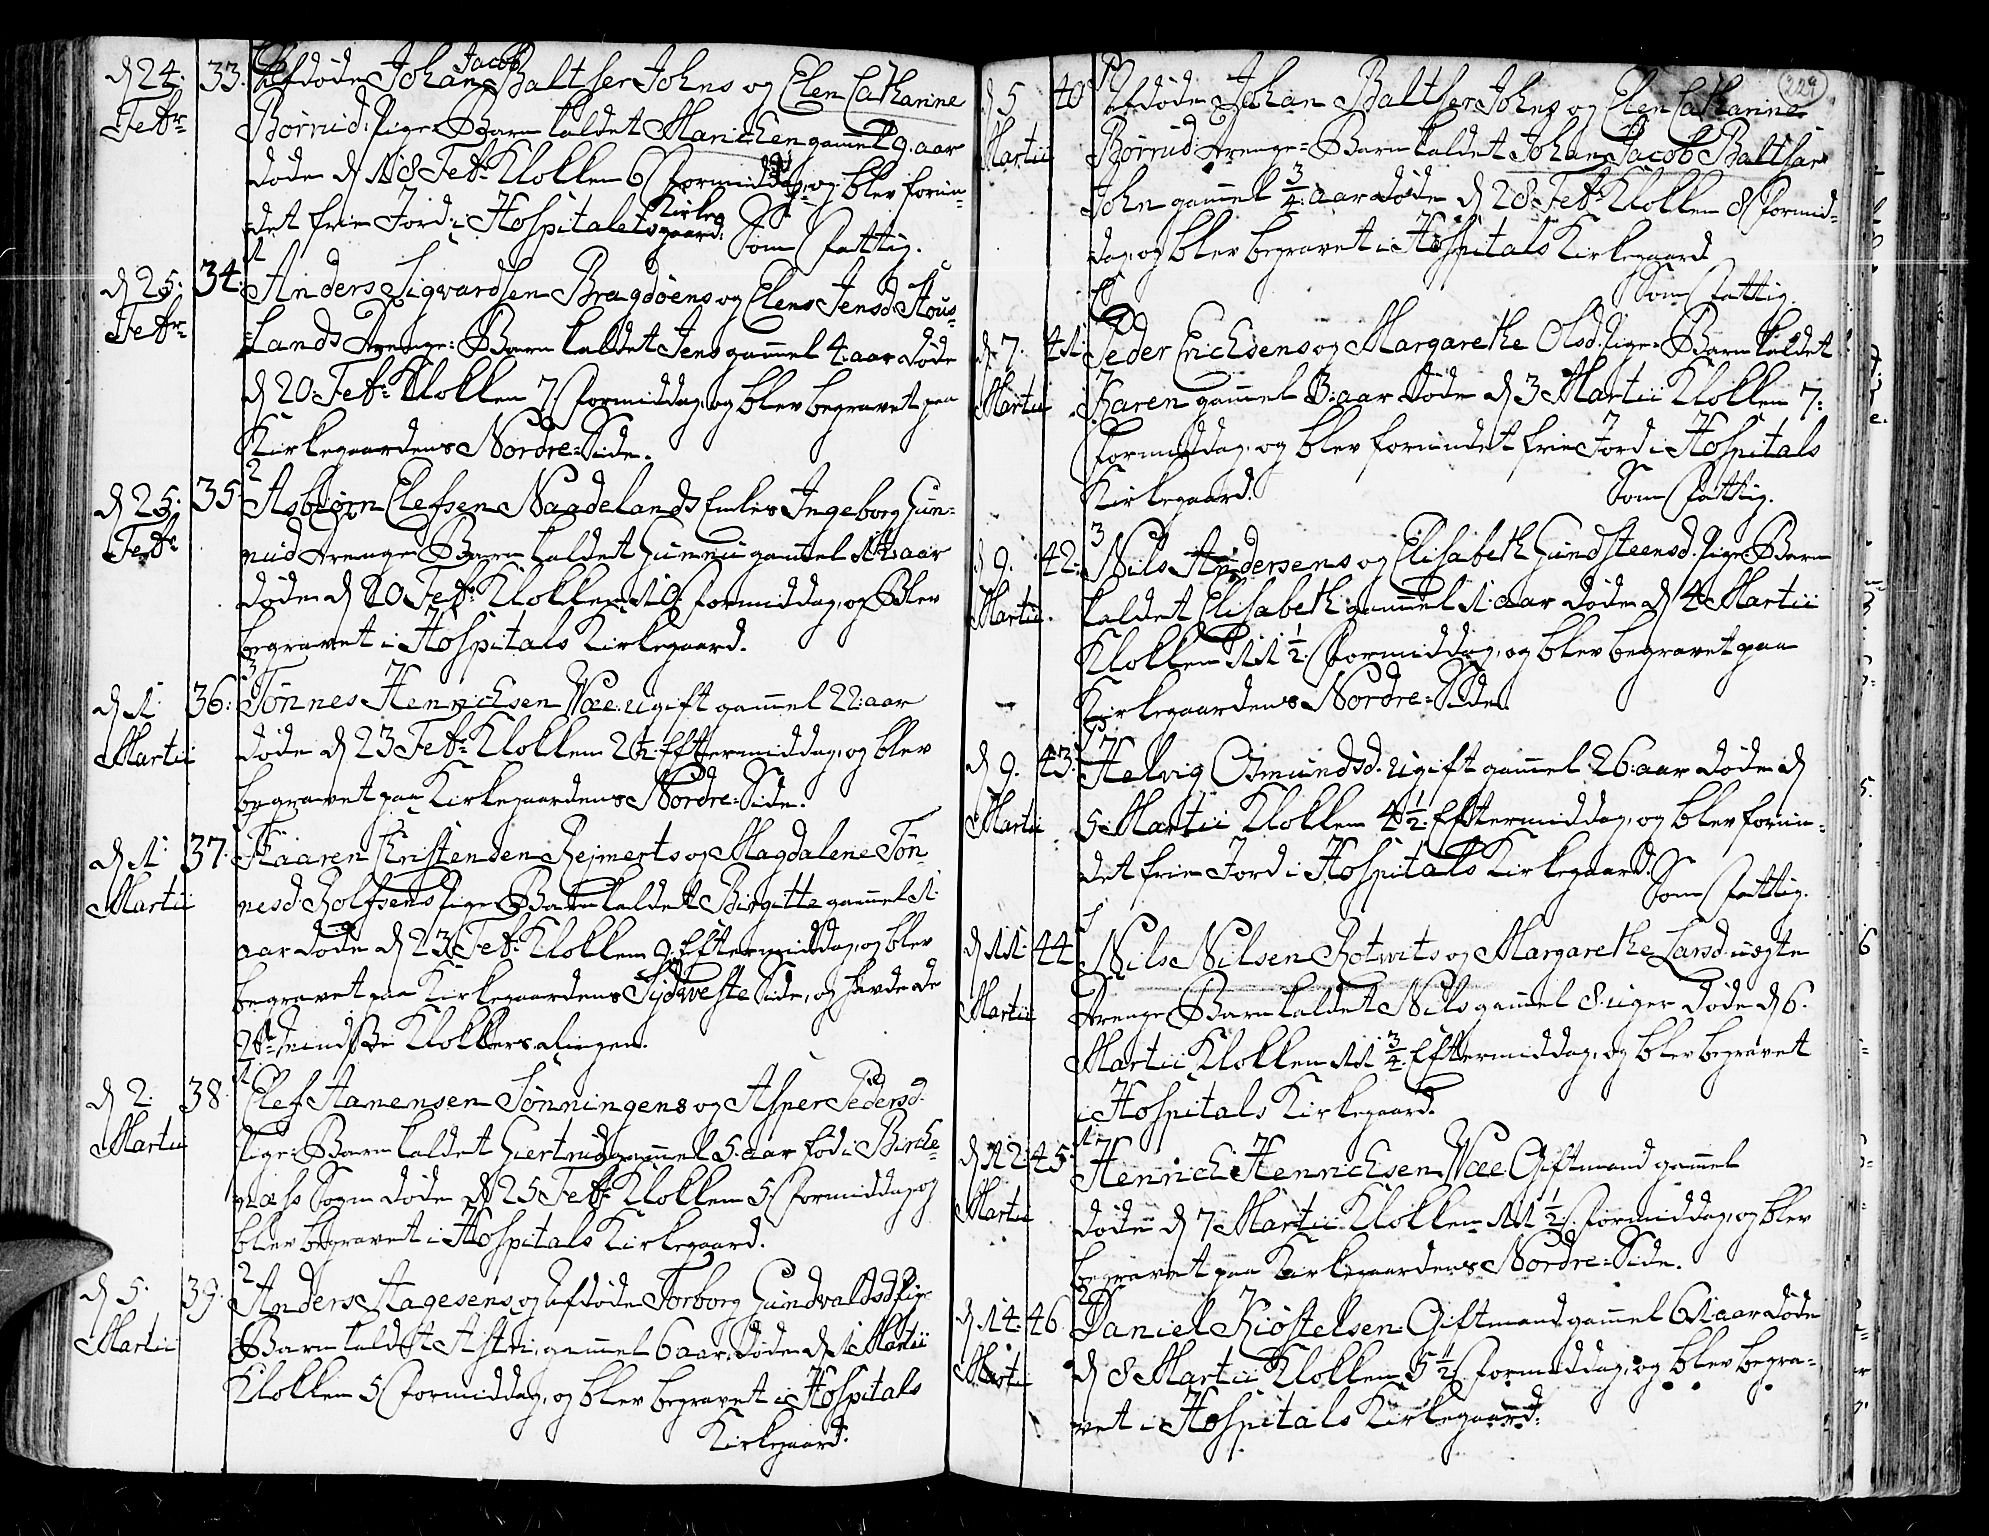 d 24. Febr. 33. Afdøde Johan Jacob Baltser Johns og Elen Catharine
Børnid: Pige-Barn kaldet Marichen gammel 9. aar
døde d 18 Febr. Klokken 6 Formiddag, og blev forun-
det frie Jord i Hospitalets Kirkegaard. Som Fattig.
d 25. Febr. 34. Anders Sigvardsen Bragdøens og Elens Jensd.
Lands Drenge-Barn kaldet Jens gammel 4. aar døde
d 20. Febr. Klokken 7. Formiddag, og blev begravet paa
Kirkegaardens Nordre-Side.
d 25. Febr. 35. Asbiørn Elefsen Naadelands Ingeborg Gun-
Drenge Barn kaldet Gunnu gammel 1 aar
døde d 20 Febr. Klokken 10. Formiddag, og Blev
begravet i Hospitals Kirkegaard.
d 1 Martii 36. Tønnes Henrichsen Wee ugift gammel 22. aar
døde d 23 Febr. Klokken 2½. Eftermiddag, og blev
begravet paa Kirkegaardens Nordre-Side.
d 1 Martii 37. Christen den Rejmerts og Magdalene Tøn-
nesd. Rolfsens Pige Barn kaldet Birgitte gammel 1
aar døde d 23 Febr. Klokken 9. Eftermiddag, og blev
begravet paa Kirkegaardens Sydveste Side, og havde de
Klokkers Ringen.
d 2. Martii 38. Elef Aanensen Sønningens og Asper Pedersd.
Pige-Barn kaldet Giertrud gammel 5. aar fød i Birche-
næss Sogn døde d 25 Febr. Klokken 5 Formiddag, og
blev begravet i Hospitals Kirkegaard.
d 5. Martii 39. Anders Aagesens og Afdøde Torborg Gundvaldsd. Pige
Barn kaldet Astri, gammel 6 aar, døde d 1 Martii
Klokken 5 Formiddag, og blev begravet i Hospitals
Kirkegaard.
229
d 5 Martii 40 Afdøde Johan Baltser Johns og Elen Catharine
Børnid: Drenge-Barn kaldet Johan Jacob Baltsar
John gammel ¾. aar døde d 28. Febr. Klokken 8 Formid-
dag, og blev begravet i Hospitals Kirkegaard
Som Fattig.
d. 7. Martii 41 Peder Erichsens og Margarethe Olsd. Pige-Barn kaldet
Karen gammel 3. aar døde d 3 Martii Klokken 7.
Formiddag, og blev forundet frie Jord i Hospitals
Kirkegaard. Som Fattig.
d 9. Martii. 42. Nils Andersens og Elisabeth Gundsteensd. Pige Barn
kaldet Elisabeth gammel 1. aar døde d 4 Martii
Klokken 11½. Formiddag, og blev begravet paa
Kirkegaardens Nordre-Side.
d 9. Martii 43. Helvig Osmundsd. ugift gammel 26. aar døde d
5. Martii Klokken 4½. Eftermiddag, og blev forun-
det frie Jord i Hospitals Kirkegaard. Som Fattig.
d 11. Martii 44 Nils Nilsen Rotwits og Margarethe Larsd. uægte
Drenge Barn kaldet Nils gammel 8. uger døde d 6.
Martii Klokken 11¾. Eftermiddag, og blev begravet
i Hospitals Kirkegaard.
d 12. Martii 45. Henrich Henrichsen Wee Giftmand gammel
døde d 7 Martii Klokken 11½. Formiddag, og blev
begravet paa Kirkegaardens Nordre-Side.
d 14. Martii 46. Daniel Kiøstelsen Giftmand gammel 61 aar døde
d 8 Martii Klokken 5½. Formiddag, og blev begra-
vet i Hospitals Kirkegaard.